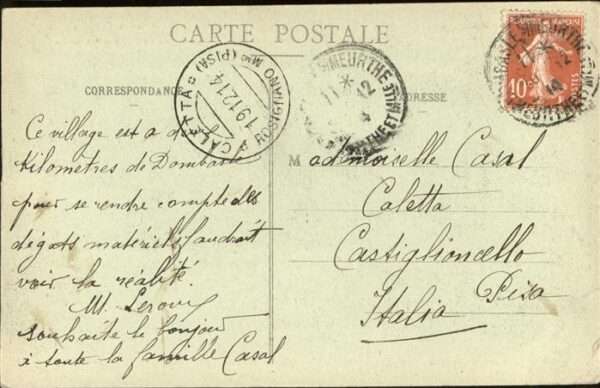 CARTE POSTALE
CORRESPONDANCE
ADRESSE
Ce village est a
Kilometres de Dombasle
pour se rendre compte des
dégats matériels faudrait
voir la réalité.
M. Leroux
souhaite le bonjour
à toute la famille Casal
Mademoiselle Casal
Caletta
Castiglioncello
Pisa
Italia
CALETTA DI ROSIGNANO Mmo (PISA)
19.12.14
MEURTHE
11 * 12
10c
POSTES